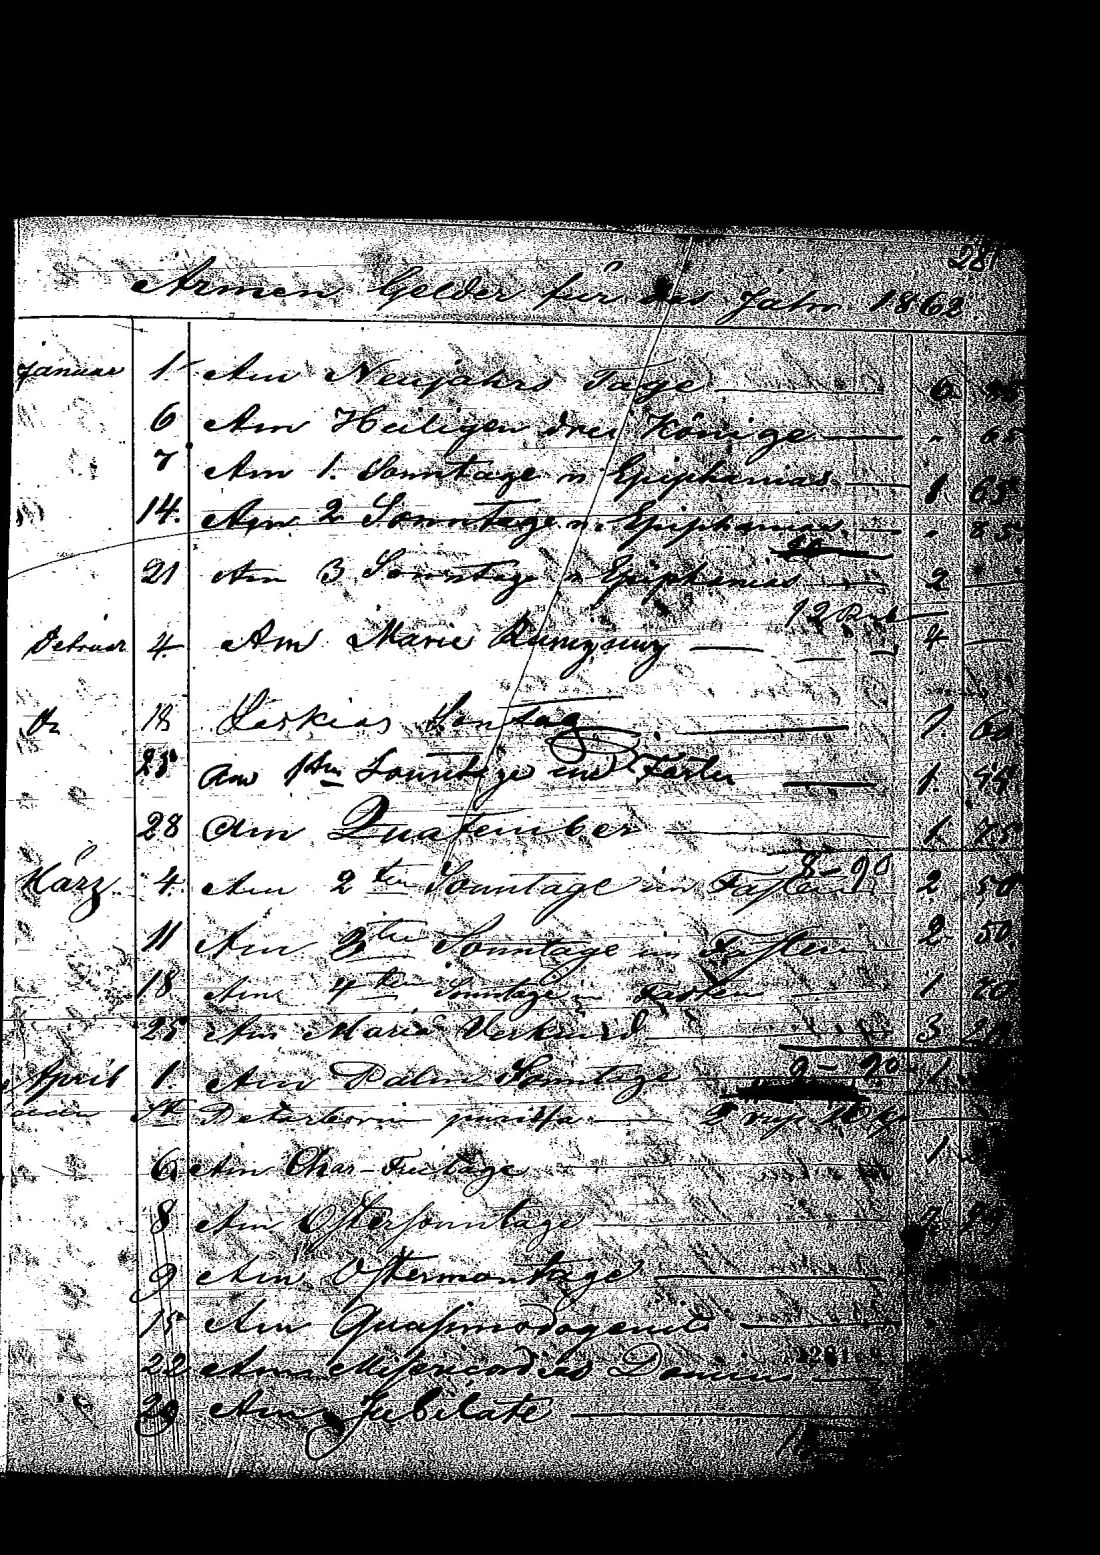 281
Armen Gelder für das Jahr 1862.
Januar 1. Am Neujahrs Tage 6
6 Am Heiligen drei Könige - 65
7 Am 1. Sonntage n Epiphanias 1. 65
14. Am 2 Sonntage n. Epiphanias. - 85.
21 Am 3 Sonntage n Epiphanias 2 —
12 Rub
Februar 4. Am Marie 4 —
18 Sontag 1. 60
25 Am 1ten Sonntage im Fasten 1.
28 Am Quatember 1. 75
8-90
März 4. Am 2ten Sonntage im Fasten 2. 50
11 Am 3ten Sonntage im Fasten 2. 50.
18 Am 4ten Sonntage in Fasten 1
25 Am Maria Verkünd 3
9-90
April 1. Am Palm Sonntage 1
St
6. Am Char-Freitage 1
8 Am Ostersonntage
9 Am Ostermontage
15 Am Quasimodogeniti
22 Am Misericordias Domini
29 Am Jubilate